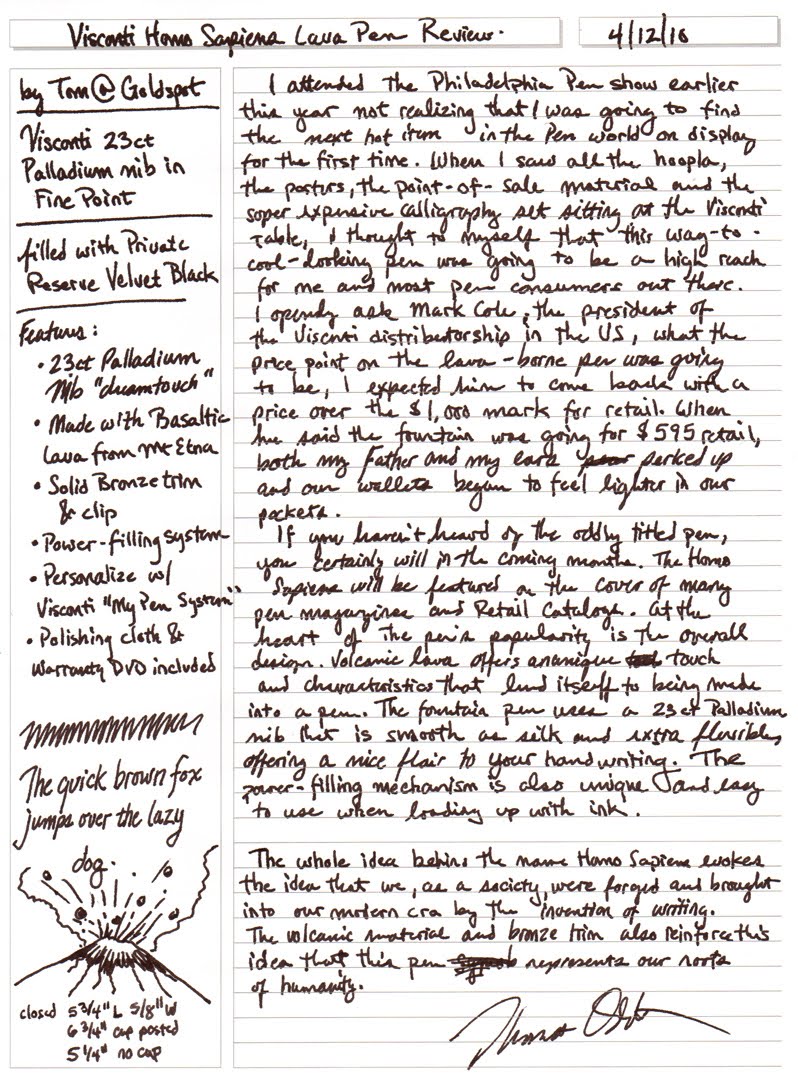 Visconti Homo Sapiens Lava Pen Review.
4/12/10
by Tom @ Goldspot
Visconti 23ct
Palladium nib in
Fine Point
filled with Private
Reserve Velvet Black
Features:
• 23ct Palladium
Nib "dreamtouch"
• Made with Basaltic
Lava from Mt Etna
• Solid Bronze trim
& clip
• Power-filling system
• Personalize w/
Visconti "My Pen System"
• Polishing cloth &
Warranty DVD included
The quick brown fox
jumps over the lazy
dog.
closed 5 3/4" L 5/8" W
6 3/4" cap posted
5 1/4" no cap
I attended the Philadelphia Pen show earlier
this year not realizing that I was going to find
the next hot item in the Pen world on display
for the first time. When I saw all the hoopla,
the posters, the point-of-sale material and the
soper expensive calligraphy set sitting at the Visconti
table, I thought to myself that this way-to-
cool-looking pen was going to be a high reach
for me and most pen consumers out there.
I openly ask Mark Cole, the president of
the Visconti distributorship in the US, what the
price point on the lava-borne pen was going
to be, I expected him to come back with a
price over the $1,000 mark for retail. When
he said the fountain was going for $595 retail,
both my Father and my ears perked up
and our wallets began to feel lighter in our
pockets.
If you haven't heard of the oddly titled pen,
you certainly will in the coming months. The Homo
Sapiens will be featured on the cover of many
pen magazines and Retail Catalogs. At the
heart of the pen's popularity is the overall
design. Volcanic lava offers an unique touch
and characteristics that lend itself to being made
into a pen. The fountain pen uses a 23ct Palladium
nib that is smooth as silk and extra flexible,
offering a nice flair to your handwriting. The
power-filling mechanism is also unique and easy
to use when loading up with ink.
The whole idea behind the name Homo Sapiens evokes
the idea that we, as a society, were forged and brought
into our modern era by the invention of writing.
The volcanic material and bronze trim also reinforce this
idea that this pen represents our roots
of humanity.